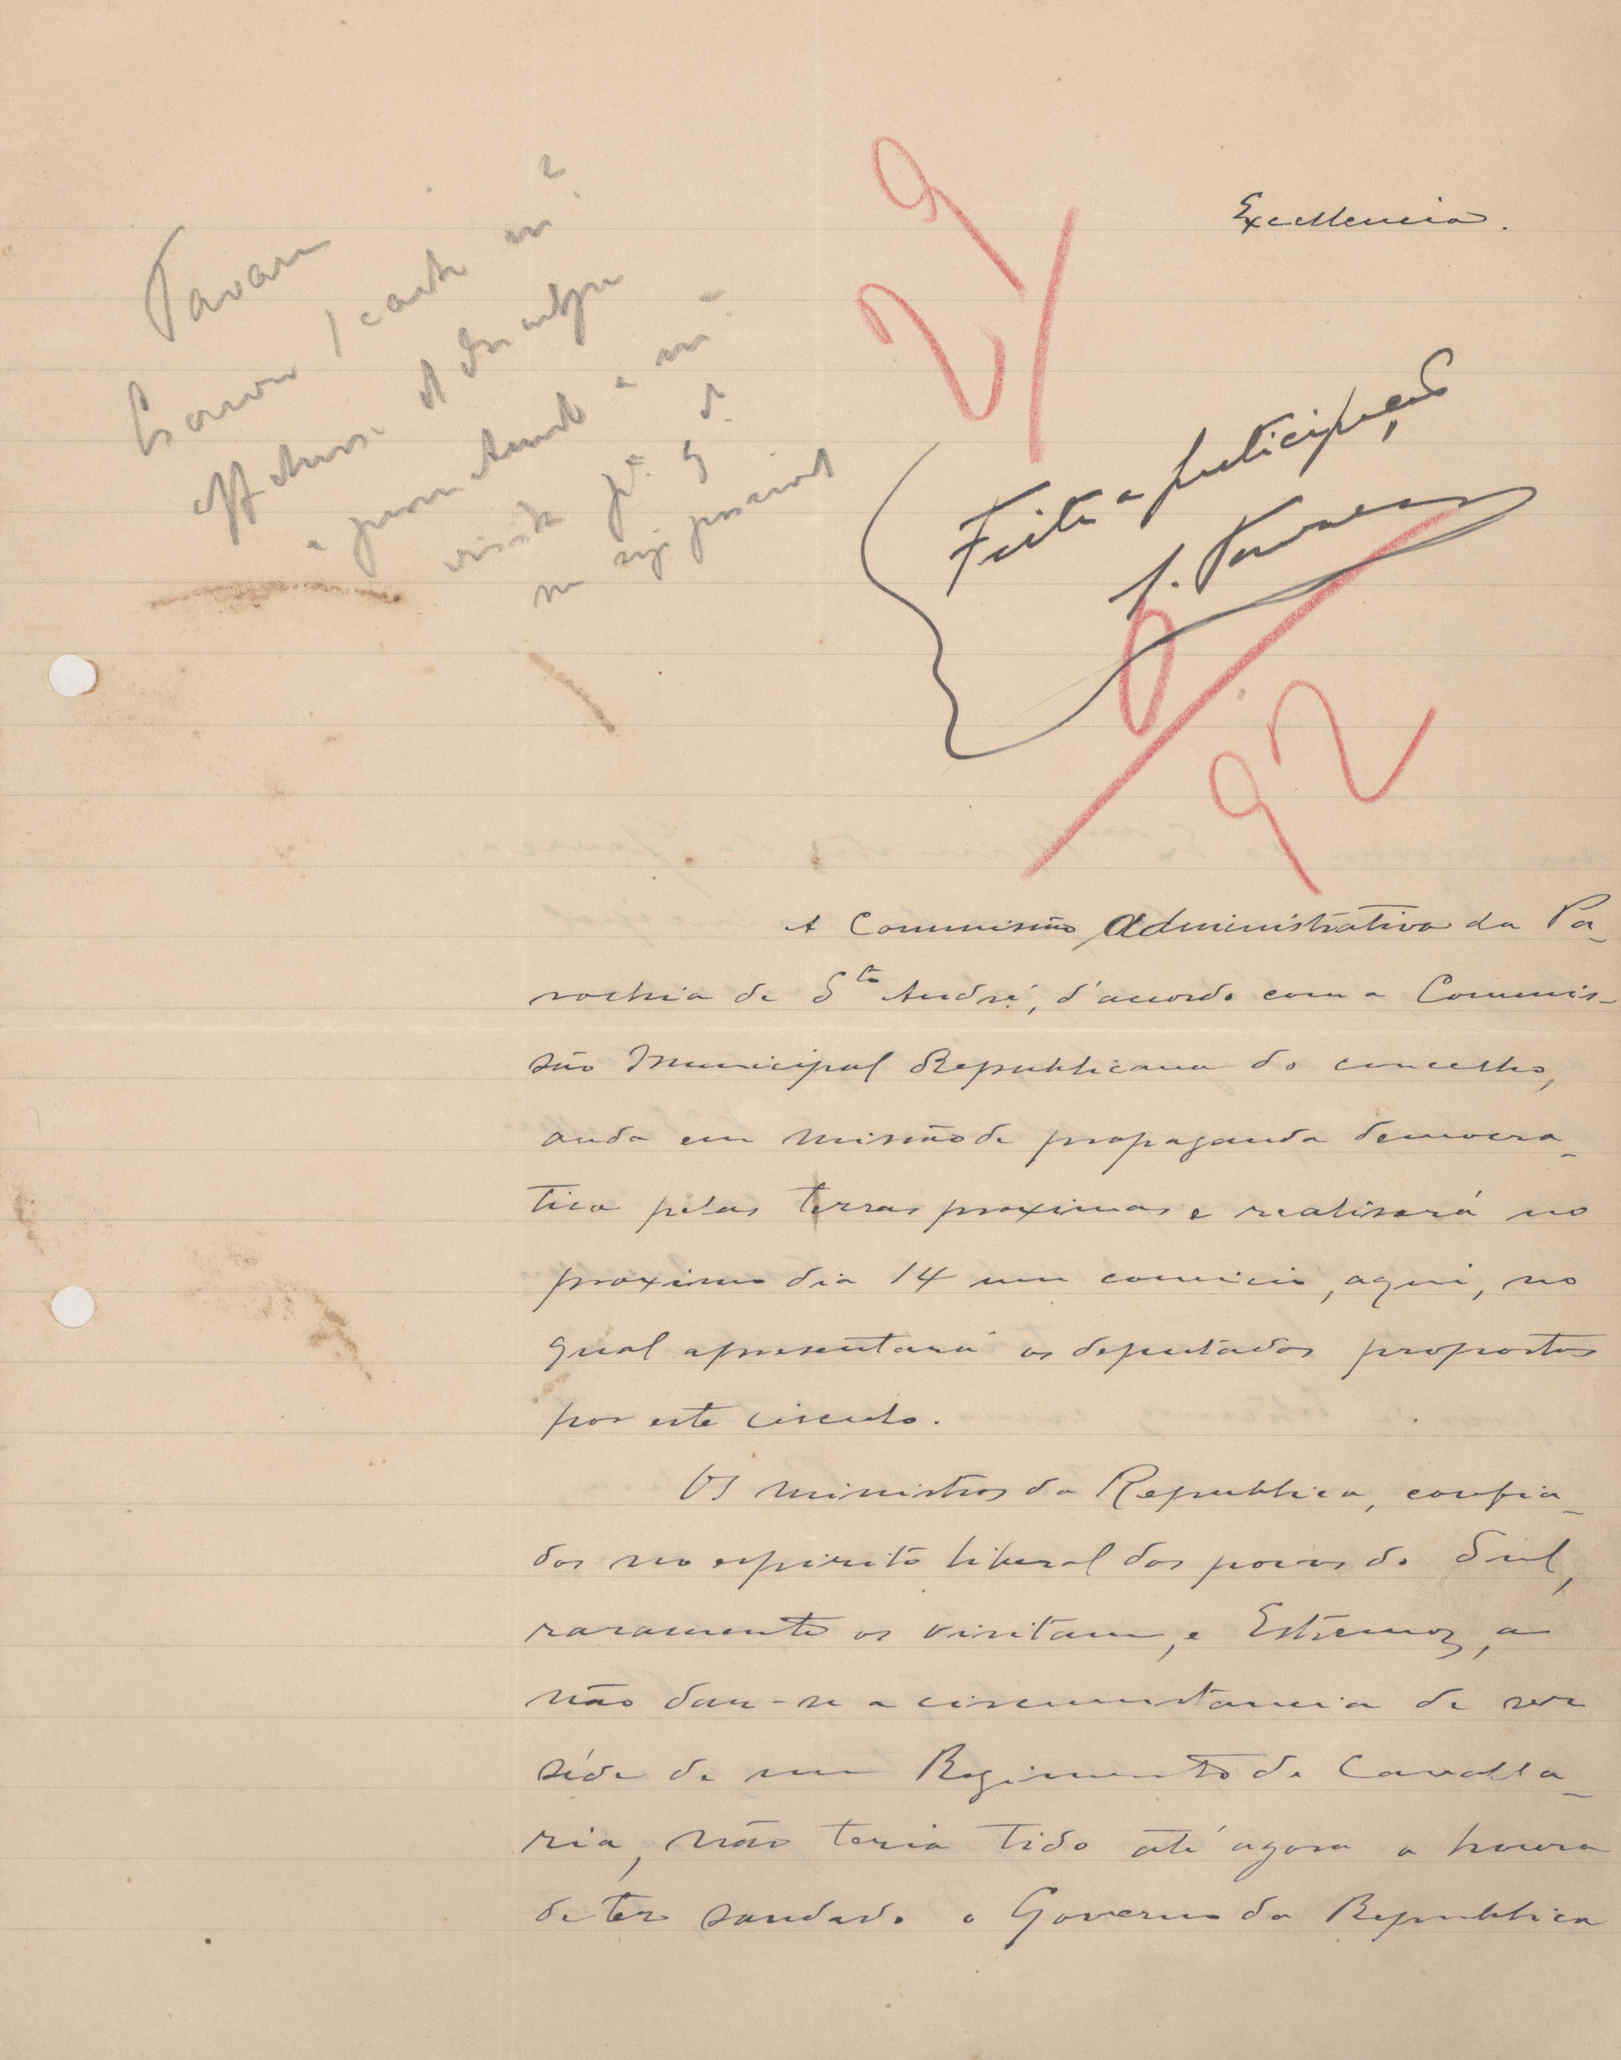 Excellencia.
Tavares
Escrever 1 carta m.
affectuosa
a prometendo a m.
visita p.ª q.do
me seja possivel
Feita a participação
J. Tavares
A Commissão Administrativa da Pa-
rochia de S.to André, d'acordo com a Commis-
são Municipal Republicana do concelho,
anda em missão de propaganda democra-
tica pelas terras proximas e realisará no
proximo dia 14 um comicio, aqui, no
qual apresentará os deputados propostos
por este circulo.
Os ministros da Republica, confia-
dos no espirito liberal dos povos do Sul,
raramente os visitam, e Estremoz, a
não dar-se a circumstancia de ser
séde de um Regimento de Cavalla-
ria, não teria tido até agora a honra
de ter saudado o Governo da Republica